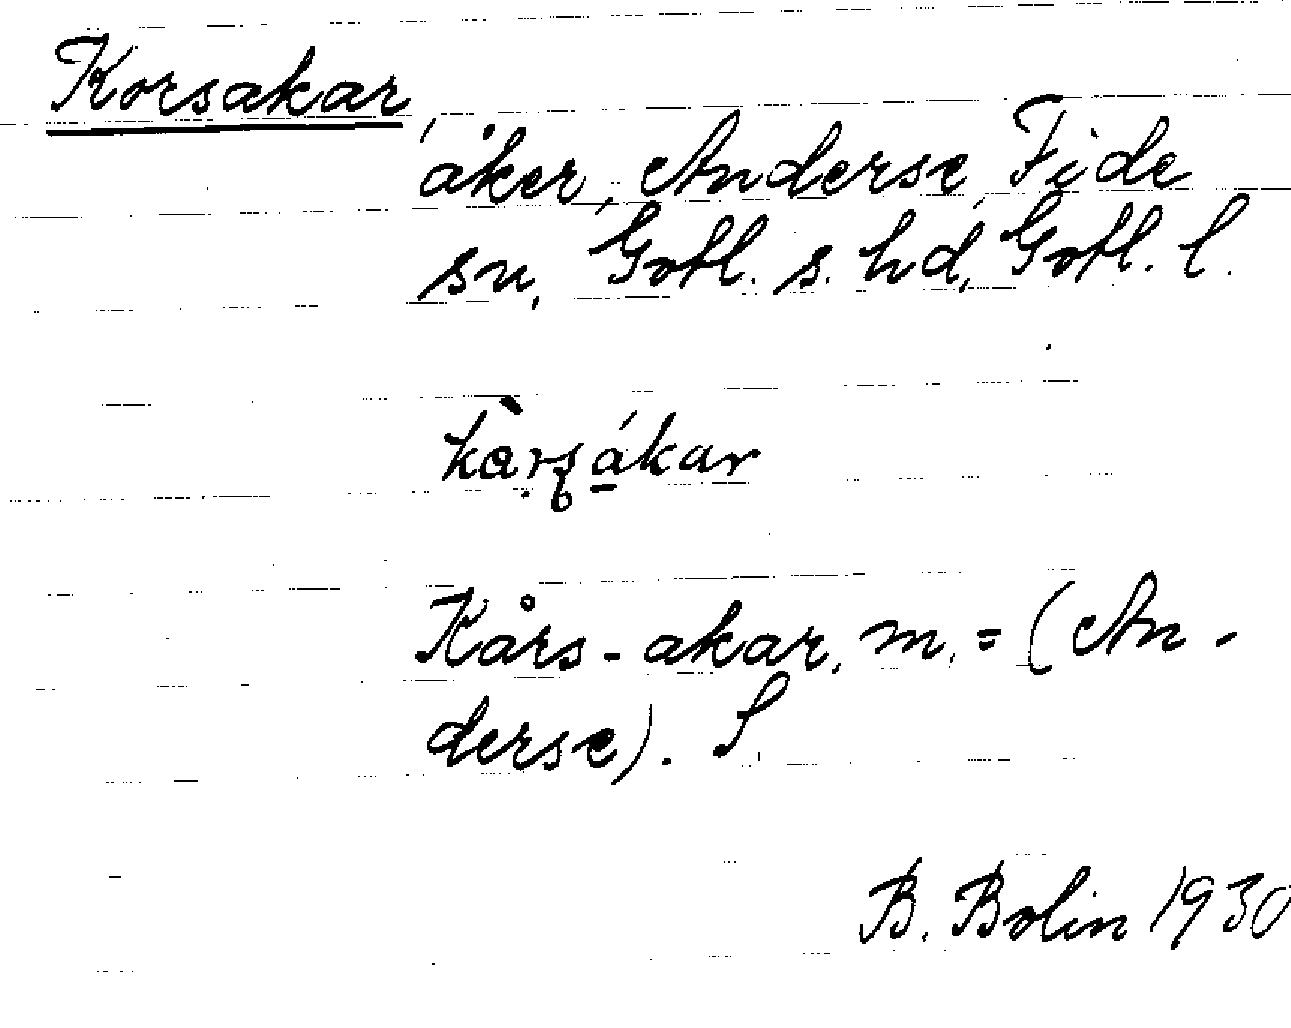 Korsakar,
åker, Anderse, Fide
sn, Gotl. s. hd, Gotl. l.
Kårs-akar, m. = (An-
derse). S.
B. Bolin 1930